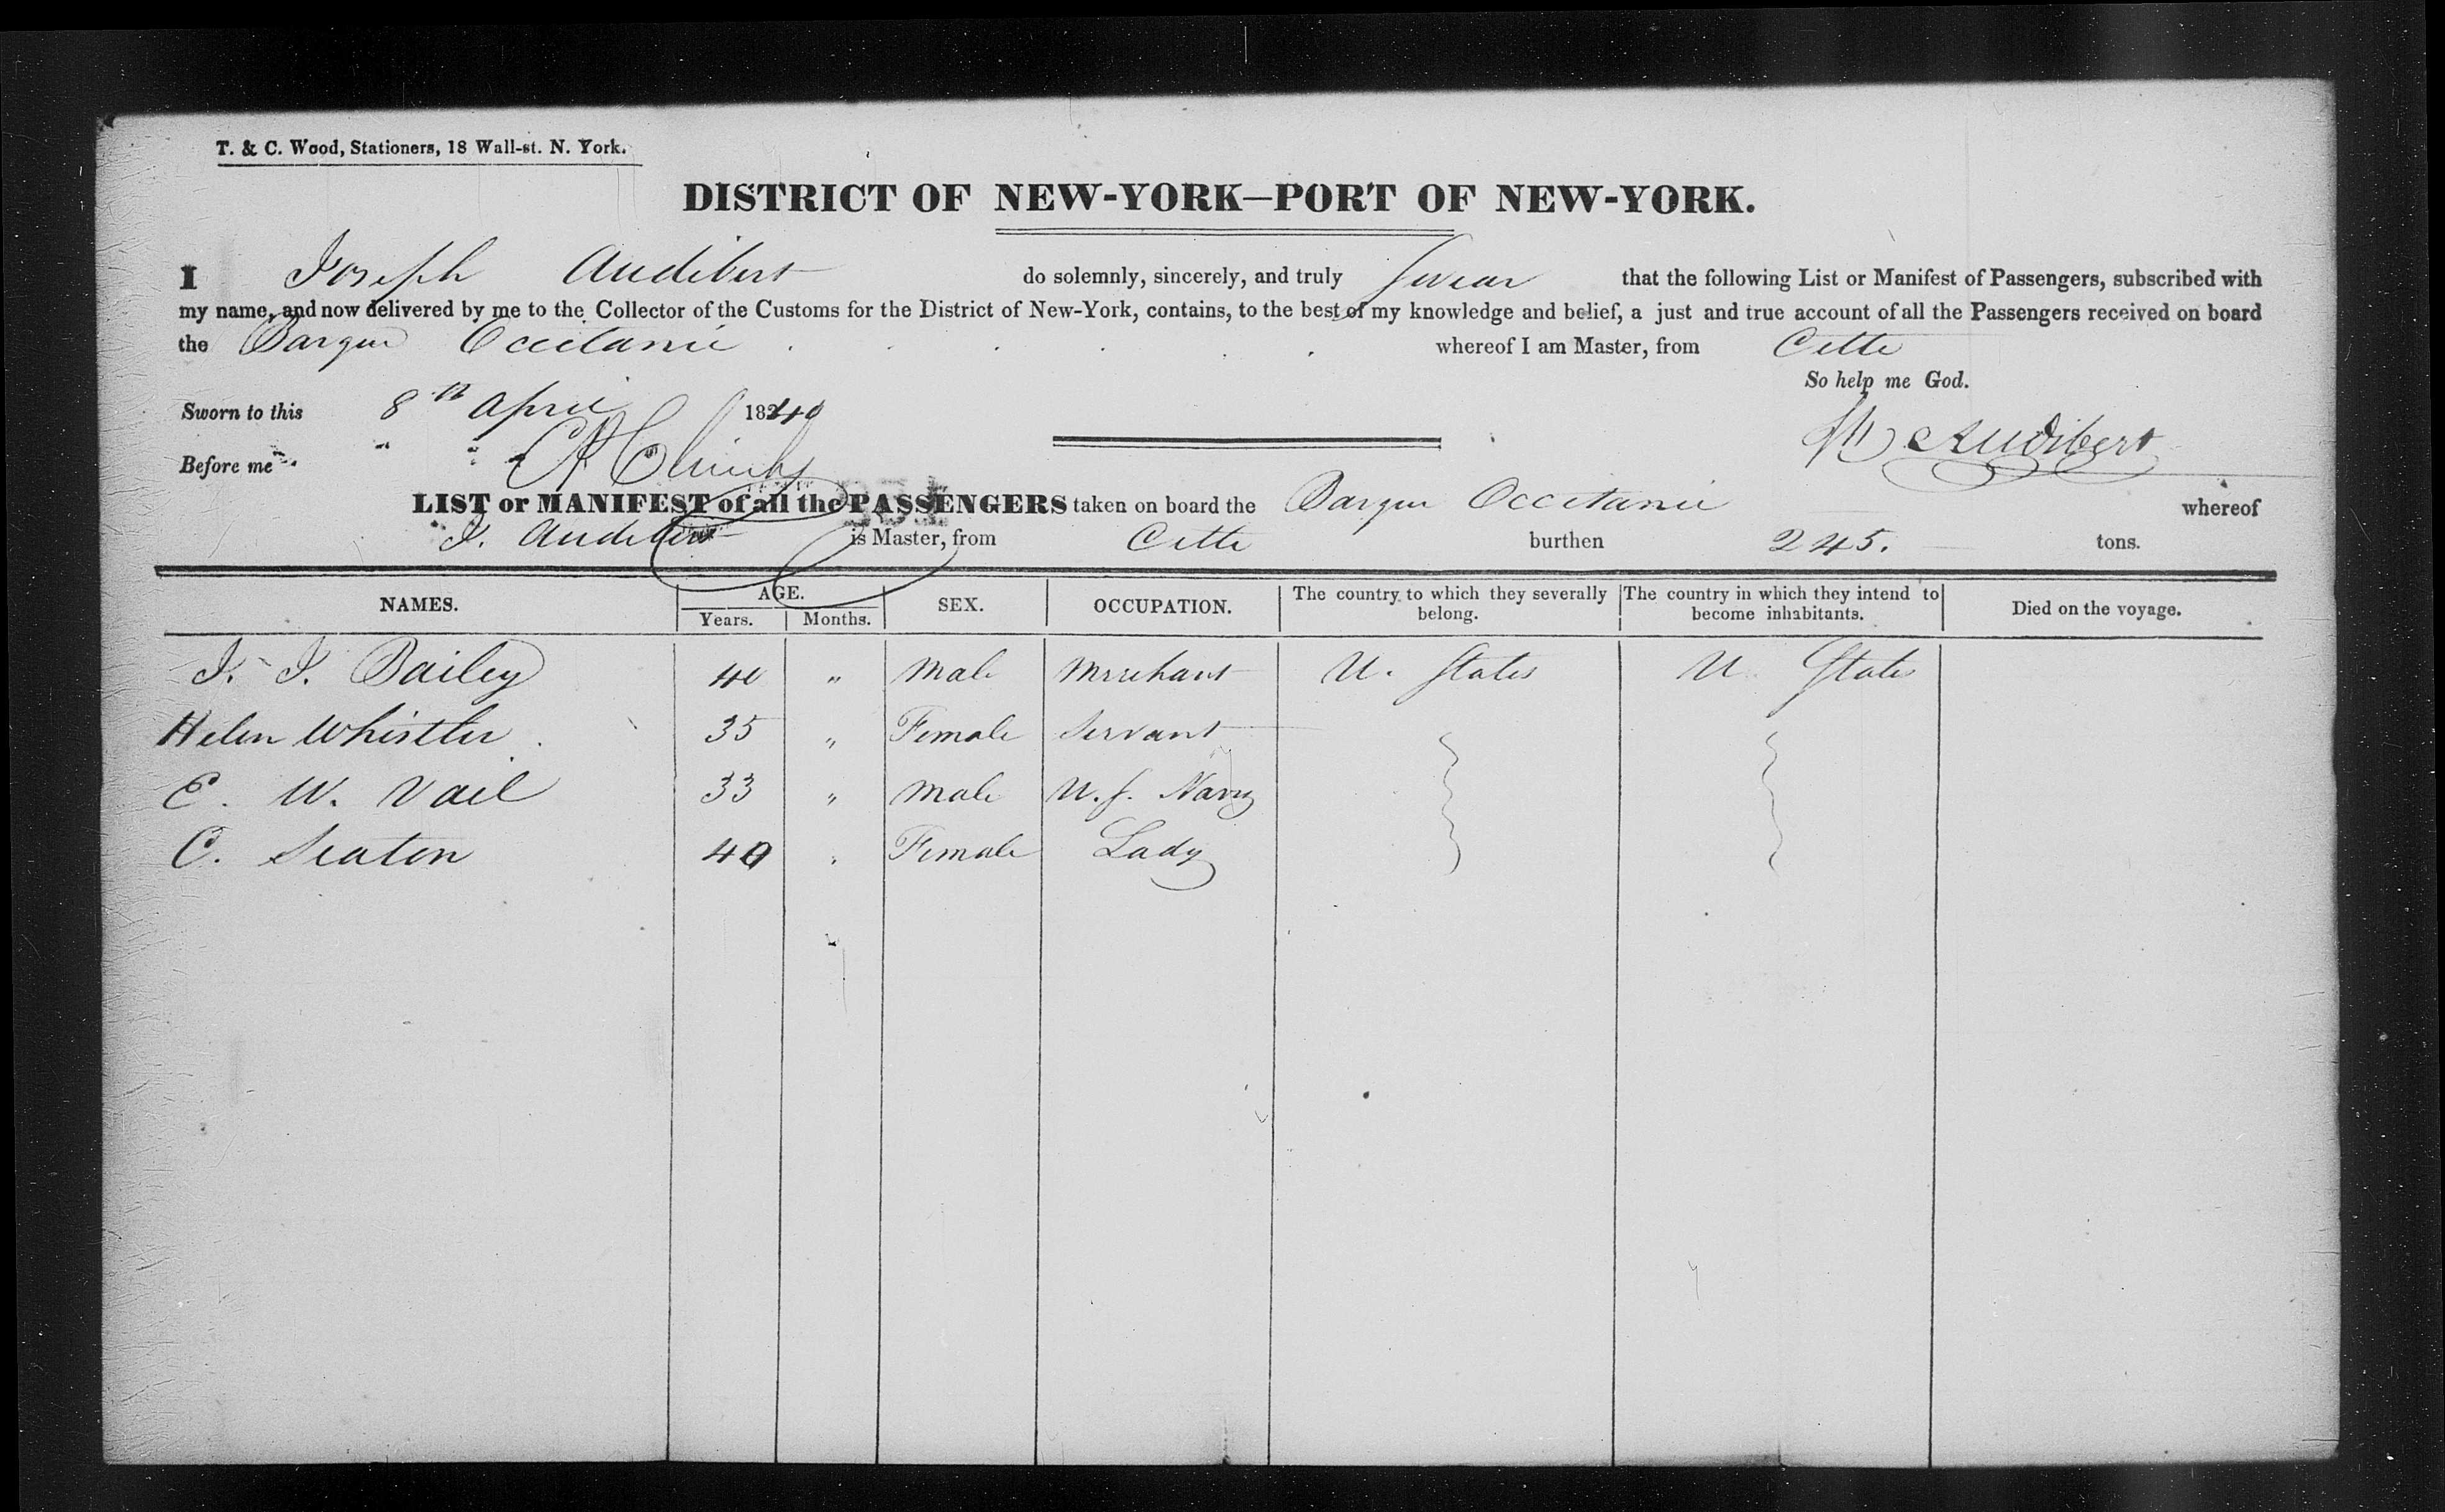 T. & C. Wood, Stationers, 18 Wall-st. N. York.
DISTRICT OF NEW-YORK—PORT OF NEW-YORK.
I Joseph Audibert do solemnly, sincerely, and truly Swear that the following List or Manifest of Passengers, subscribed with
my name, and now delivered by me to the Collector of the Customs for the District of New-York, contains, to the best of my knowledge and belief, a just and true account of all the Passengers received on board
the Barque Occitanie whereof I am Master, from Cette
So help me God.
Sworn to this 8th April 1840
Before me
Audibert
LIST or MANIFEST of all the PASSENGERS taken on board the Barque Occitanie whereof
J. Audibert is Master, from Cette burthen 245. tons.
NAMES. AGE. Years. Months. SEX. OCCUPATION. The country to which they severally belong. The country in which they intend to become inhabitants. Died on the voyage.
J. J. Bailey 40 " Male Merchant U. States U. States
Helen Whistler 35 " Female Servant
E. W. Vail 33 " Male U.S. Navy
C. Seaton 40 " Female Lady